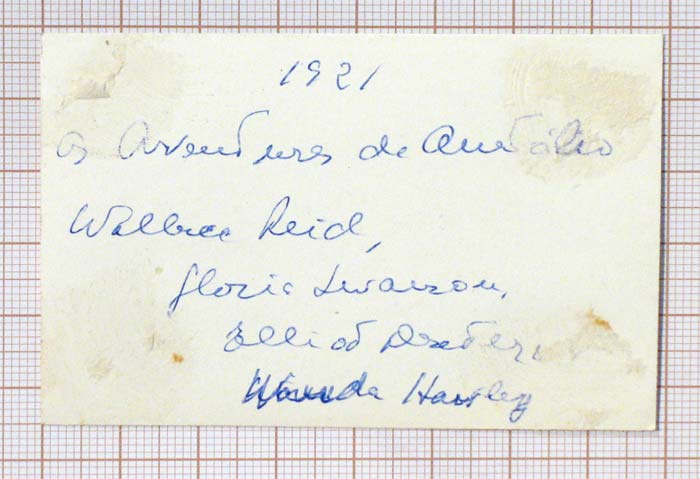 1921
as Aventuras de Anatólio
Wallace Reid,
Gloria Swanson,
Elliot Dexter,
Wanda Hawley